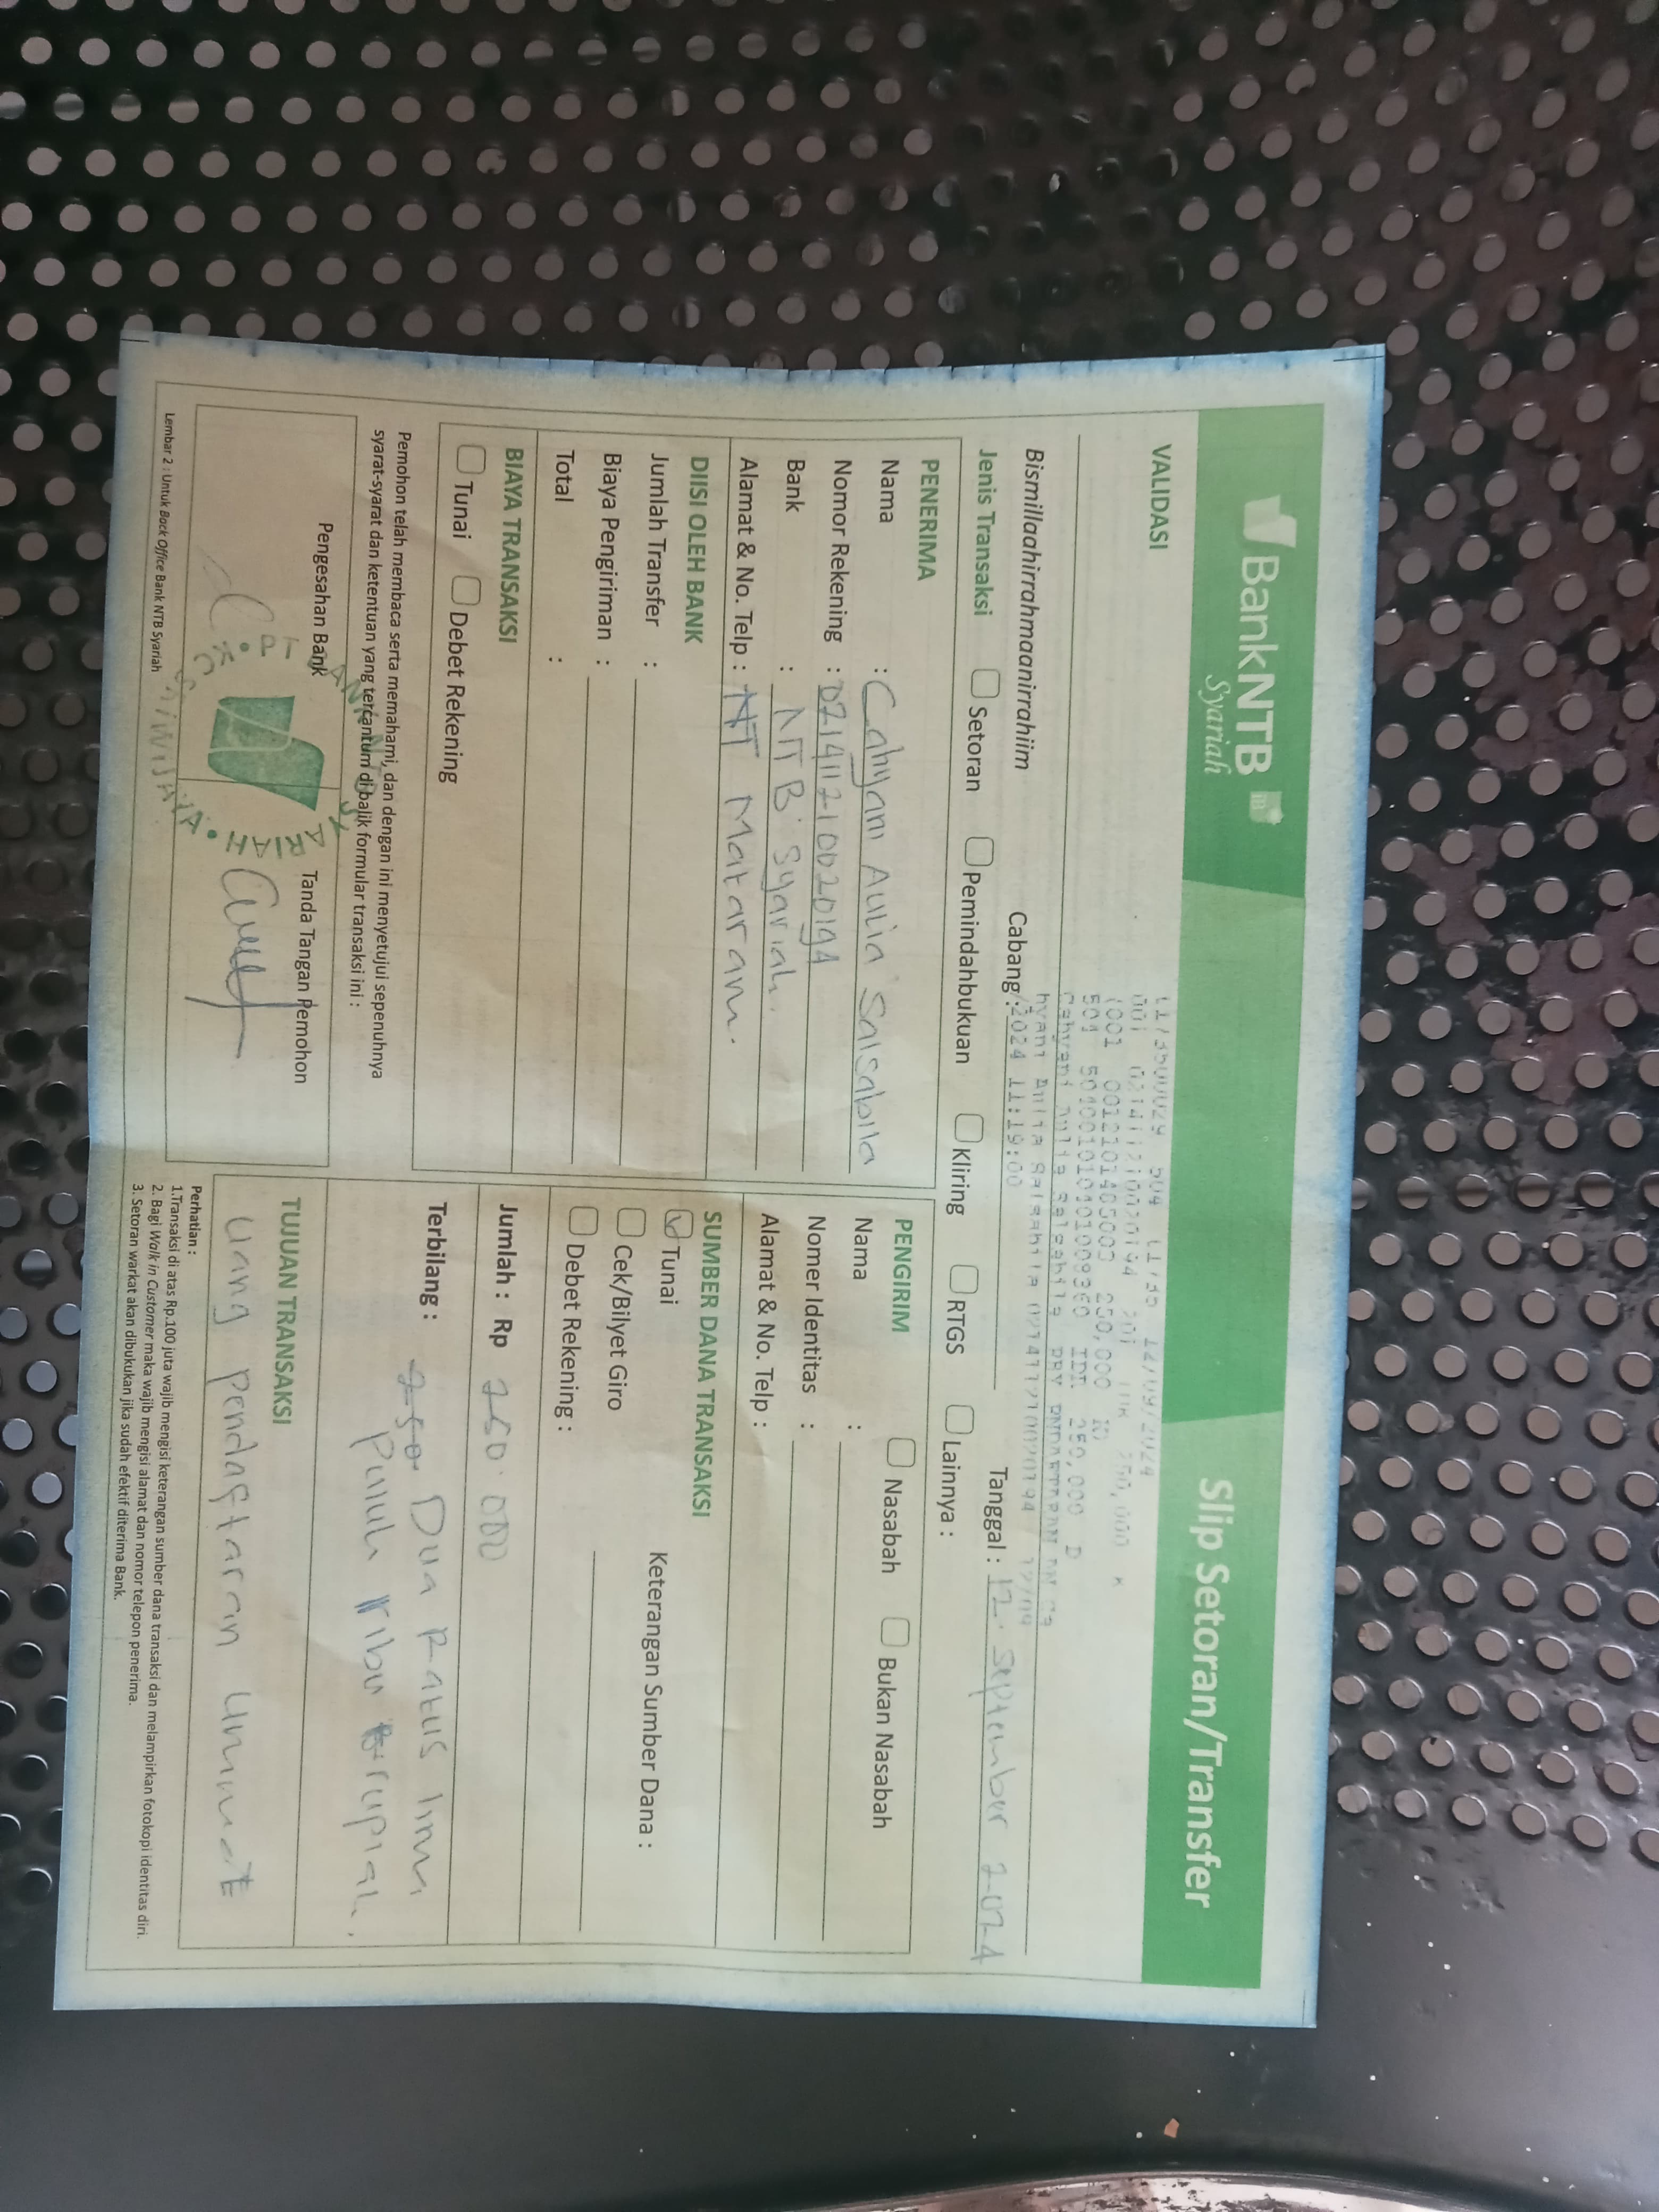 BankNTB
Syariah
Slip Setoran/Transfer
VALIDASI
504 12/09/2024
0012101485003 250,000
504 504001010101009360 IDR 250,000 D
Bismillaahirrahmaanirrahiim
Cabang :
2024 11:19:00
Tanggal : 12. September 2024
Jenis Transaksi Setoran Pemindahbukuan Kliring RTGS Lainnya :
PENERIMA
Nama : Cahyani Aulia Salsabila
Nomor Rekening : 021411210020194
Bank : NTB Syariah.
Alamat & No. Telp : Mataram.
PENGIRIM
Nasabah Bukan Nasabah
Nama :
Nomer Identitas :
Alamat & No. Telp :
DIISI OLEH BANK
Jumlah Transfer :
Biaya Pengiriman :
Total :
SUMBER DANA TRANSAKSI
Tunai
Keterangan Sumber Dana :
Cek/Bilyet Giro
Debet Rekening :
BIAYA TRANSAKSI
Tunai Debet Rekening
Jumlah : Rp 250.000
Terbilang : Dua Ratus lima
Puluh ribu rupiah.
Pemohon telah membaca serta memahami, dan dengan ini menyetujui sepenuhnya
syarat-syarat dan ketentuan yang tercantum di balik formular transaksi ini :
Pengesahan Bank
Tanda Tangan Pemohon
TUJUAN TRANSAKSI
uang pendaftaran
Lembar 2 : Untuk Back Office Bank NTB Syariah
Perhatian :
1.Transaksi di atas Rp.100 juta wajib mengisi keterangan sumber dana transaksi dan melampirkan fotokopi identitas diri.
2. Bagi Walk in Customer maka wajib mengisi alamat dan nomor telepon penerima.
3. Setoran warkat akan dibukukan jika sudah efektif diterima Bank.